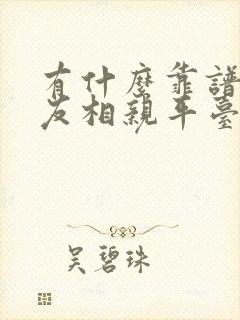 有什麼靠譜
友相親平臺
吳碧珠